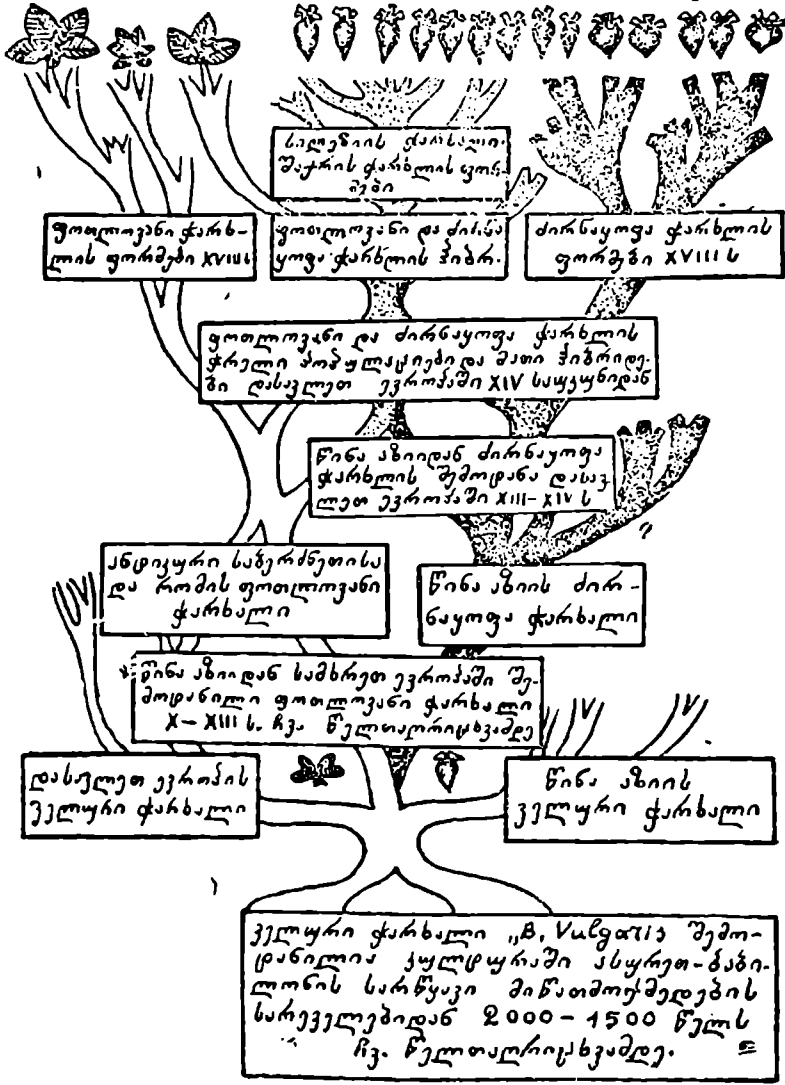 სილეზიის ჭარხალი.
შაქრის ჭარხლის ფორ-
მები
ფოთლოვანი ჭარხ-
ლის ფორმები XVIII ს
ფოთლოვანი და ძირნა
ყოფა ჭარხლის ჰიბრ.
ძირნაყოფა ჭარხლის
ფორმები XVIII ს
ფოთლოვანი და ძირნაყოფა ჭარხლის
ჭრელი პოპულაციები და მათი ჰიბრიდე-
ბი დასავლეთ ევროპაში XIV საუკუნიდან
წინა აზიიდან ძირნაყოფა
ჭარხლის შემოტანა დასავ
ლეთ ევროპაში XIII-XIV ს
ანტიკური საბერძნეთისა
და რომის ფოთლოვანი
ჭარხალი
წინა აზიის ძირ-
ნაყოფა ჭარხალი
წინა აზიიდან სამხრეთ ევროპაში შე-
მოტანილი ფოთლოვანი ჭარხალი
X-XIII ს. ჩვ. წელთაღრიცხვამდე
დასავლეთ ევროპის
ველური ჭარხალი
წინა აზიის
ველური ჭარხალი
ველური ჭარხალი „B. Vulgaris შემო-
ტანილია კულტურაში ასურეთ-ბაბი-
ლონის სარწყავი მიწათმოქმედების
სარეველებიდან 2000-1500 წელს
ჩვ. წელთაღრიცხვამდე.